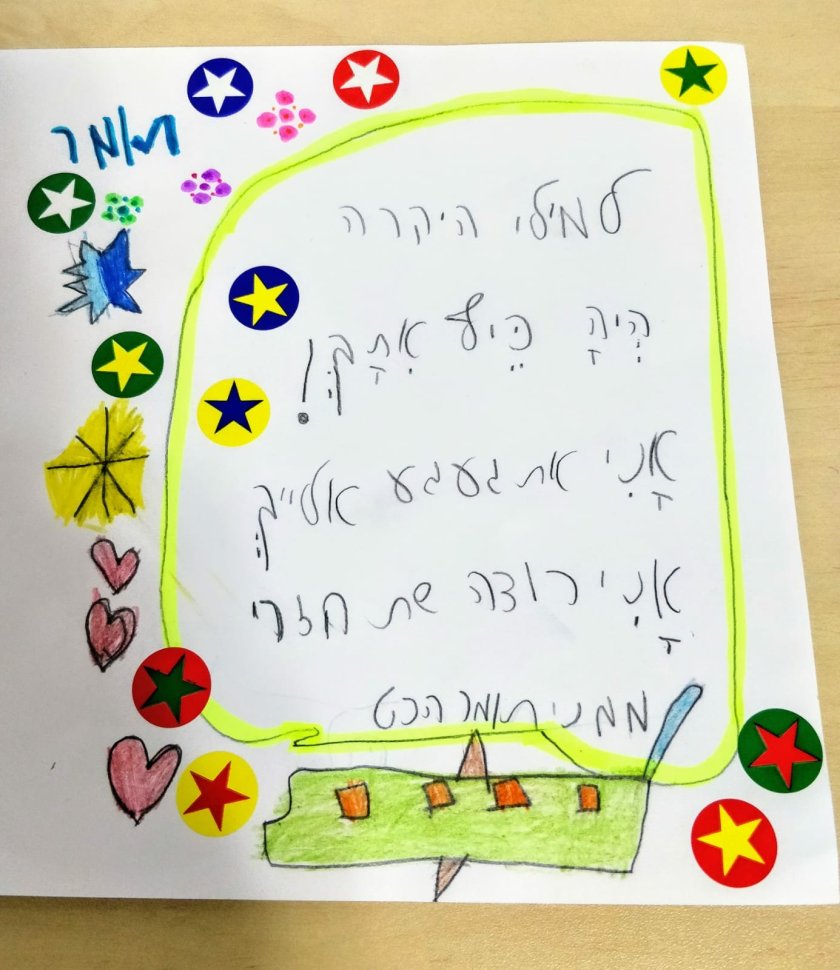 תומר
למילי היקרה
הְיהָ כֵּיף אִתָּךְ!
אָנִי את געגע אלייךְ
אָנִי רוצה שת חזרי
ממני תומר הכט